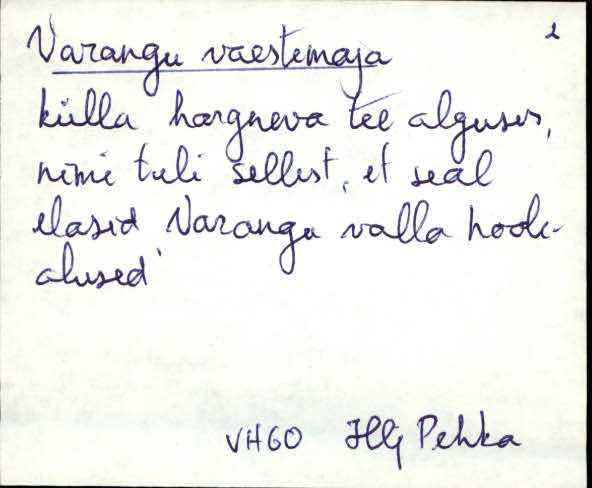 2
Varangu vaestemaja
külla hargneva tee alguses,
nimi tuli sellest, et seal
elasid Varangu valla hook-
alused
VH60 Pehka